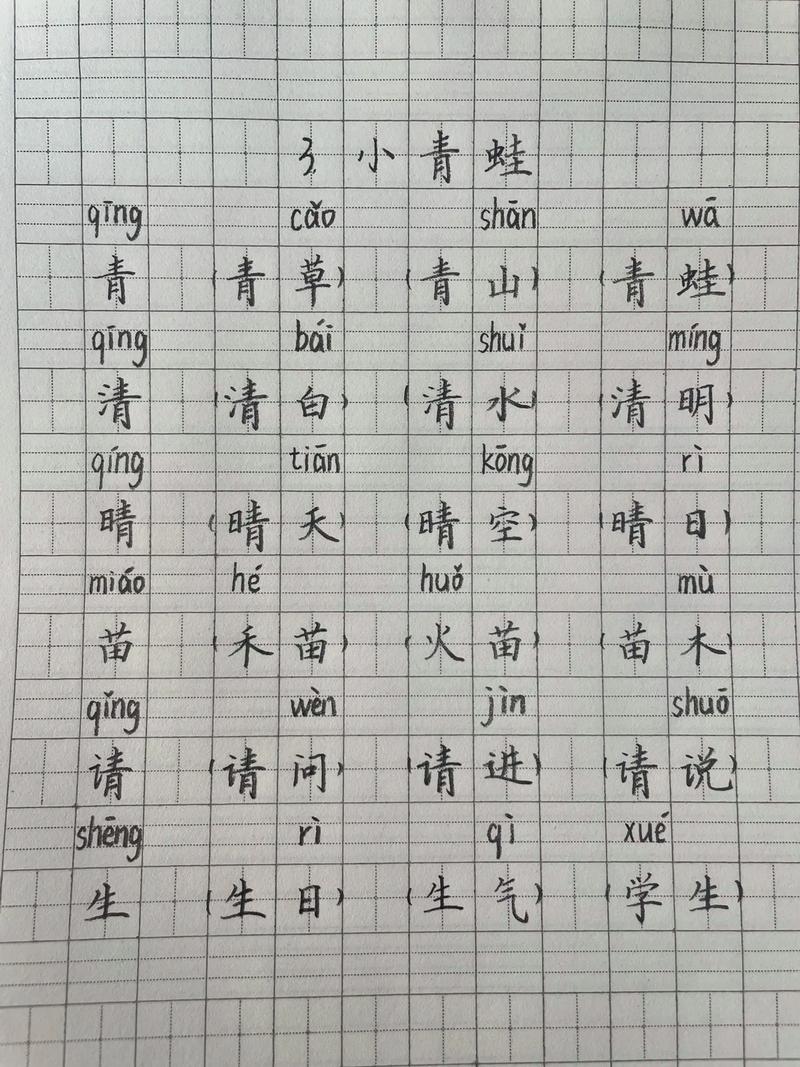 3 小青蛙
qīng cǎo shān wā
青 (青草) (青山) (青蛙)
qīng bái shuǐ míng
清 (清白) (清水) (清明)
qíng tiān kōng rì
晴 (晴天) (晴空) (晴日)
miáo hé huǒ mù
苗 (禾苗) (火苗) (苗木)
qǐng wèn jìn shuō
请 (请问) (请进) (请说)
shēng rì qì xué
生 (生日) (生气) (学生)